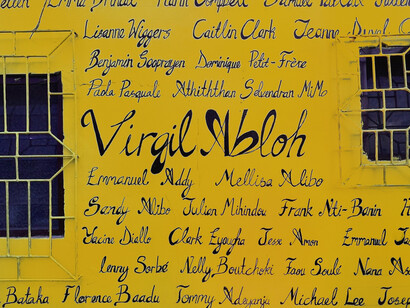 Campbell
Lisanne Wiggers Caitlin Clark Jeanne
Benjamin Sooprayen Dominique Petit-Frère
Paola Pasquale Athiththan Selvendran MiMo
Virgil Abloh
Emmanuel Addy Mellisa Alibo
Sandy Alibo Julian Mihindou Frank Nti-Banin
Yacine Diallo Clark Eyougha Jess Amon Emmanuel
Lenny Sorbé Nelly Boutchoki Faou Soulé Nana
Bataka Florence Baadu Tommy Adeyanja Michael Lee